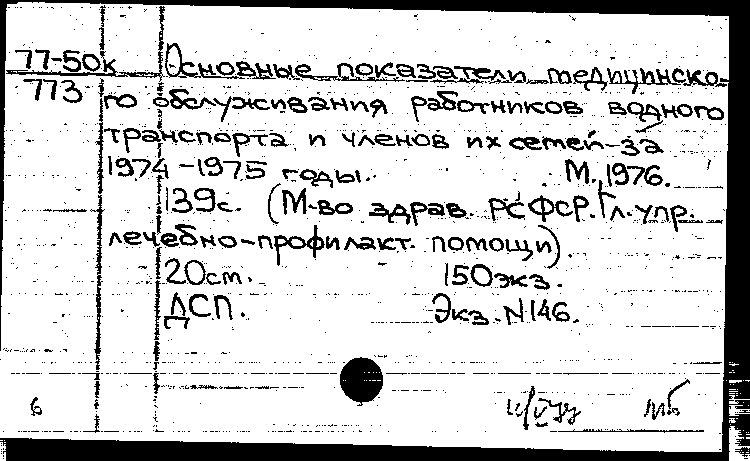 77-50к Основные показатели медицинско-
773 го обслуживания работников водного
транспорта и членов их семей за
1974-1975 годы. М., 1976.
139с. (М-во здрав. РСФСР. Гл. упр.
лечебно-профилакт. помощи).
20см. 150экз.
ДСП. Экз. N146.
6 мб